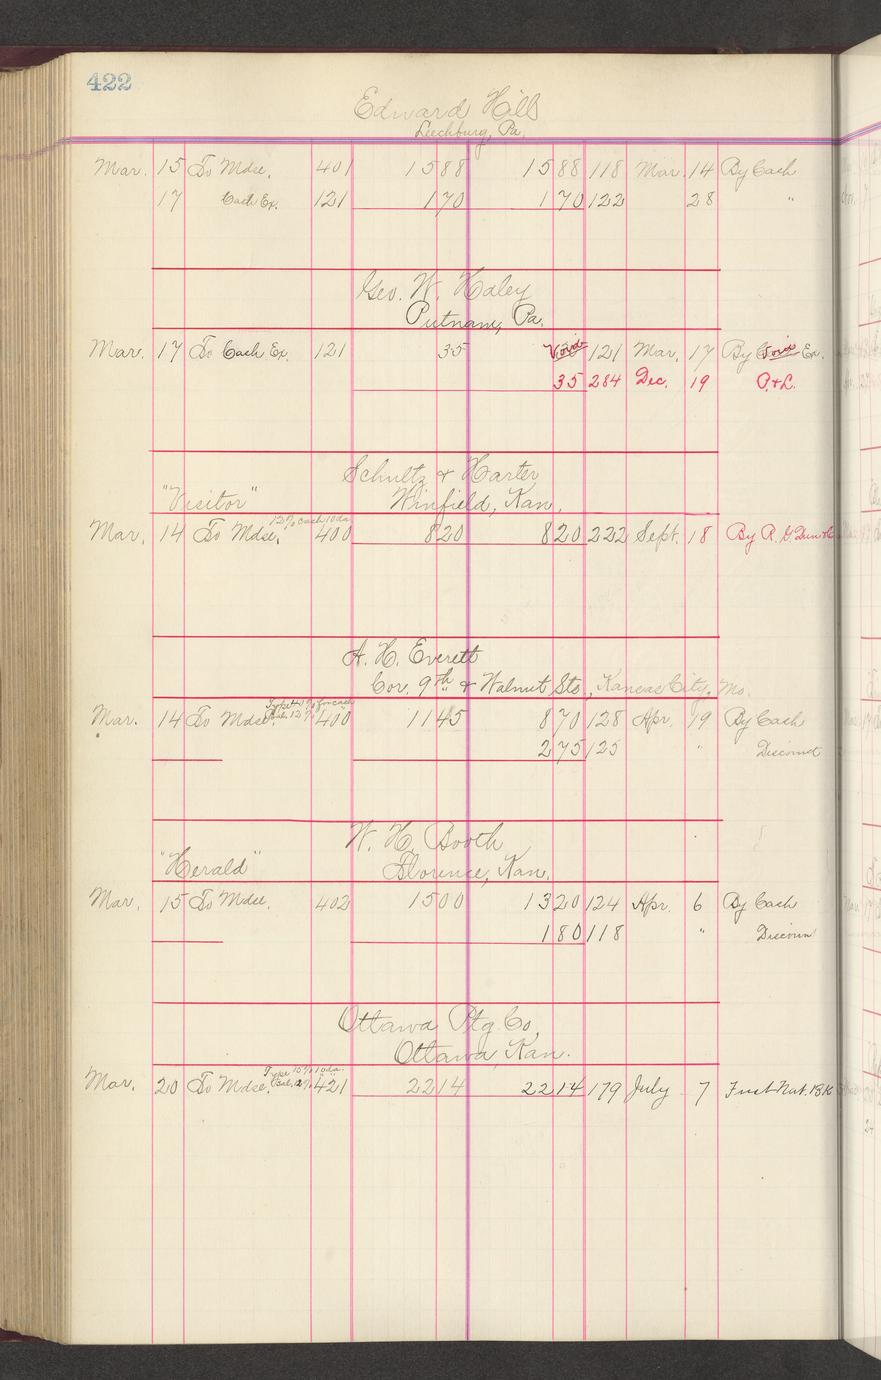 422
Edward Hill
Leechburg, Pa.
Mar. 15 To Mdse. 401 15 88 15 88 118 Mar. 14 By Cash
17 Cash Ex. 121 1 70 1 70 122 28 "
Geo. W. Haley
Putnam, Pa.
Mar. 17 To Cash Ex. 121 35 Void 121 Mar. 17 By Void Ex.
35 284 Dec. 19 P. & L.
Schultz & Harter
"Visitor" Winfield, Kan.
12% Cash 10 da.
Mar. 14 To Mdse. 400 8 20 8 20 222 Sept. 18 By R. G. Dun & C
A. H. Everett
Cor. 9th & Walnut Sts, Kansas City, Mo.
Mar. 14 To Mdse. 400 11 45 8 70 128 Apr. 19 By Cash
2 75 125 " Discount
W. H. Booth
"Herald" Florence, Kan.
Mar. 15 To Mdse. 402 15 00 13 20 124 Apr. 6 By Cash
1 80 118 " Discoun
Ottawa Ptg. Co,
Ottawa, Kan.
Type 10% 10 da.
Mar. 20 To Mdse. 421 22 14 22 14 179 July 7 Bk